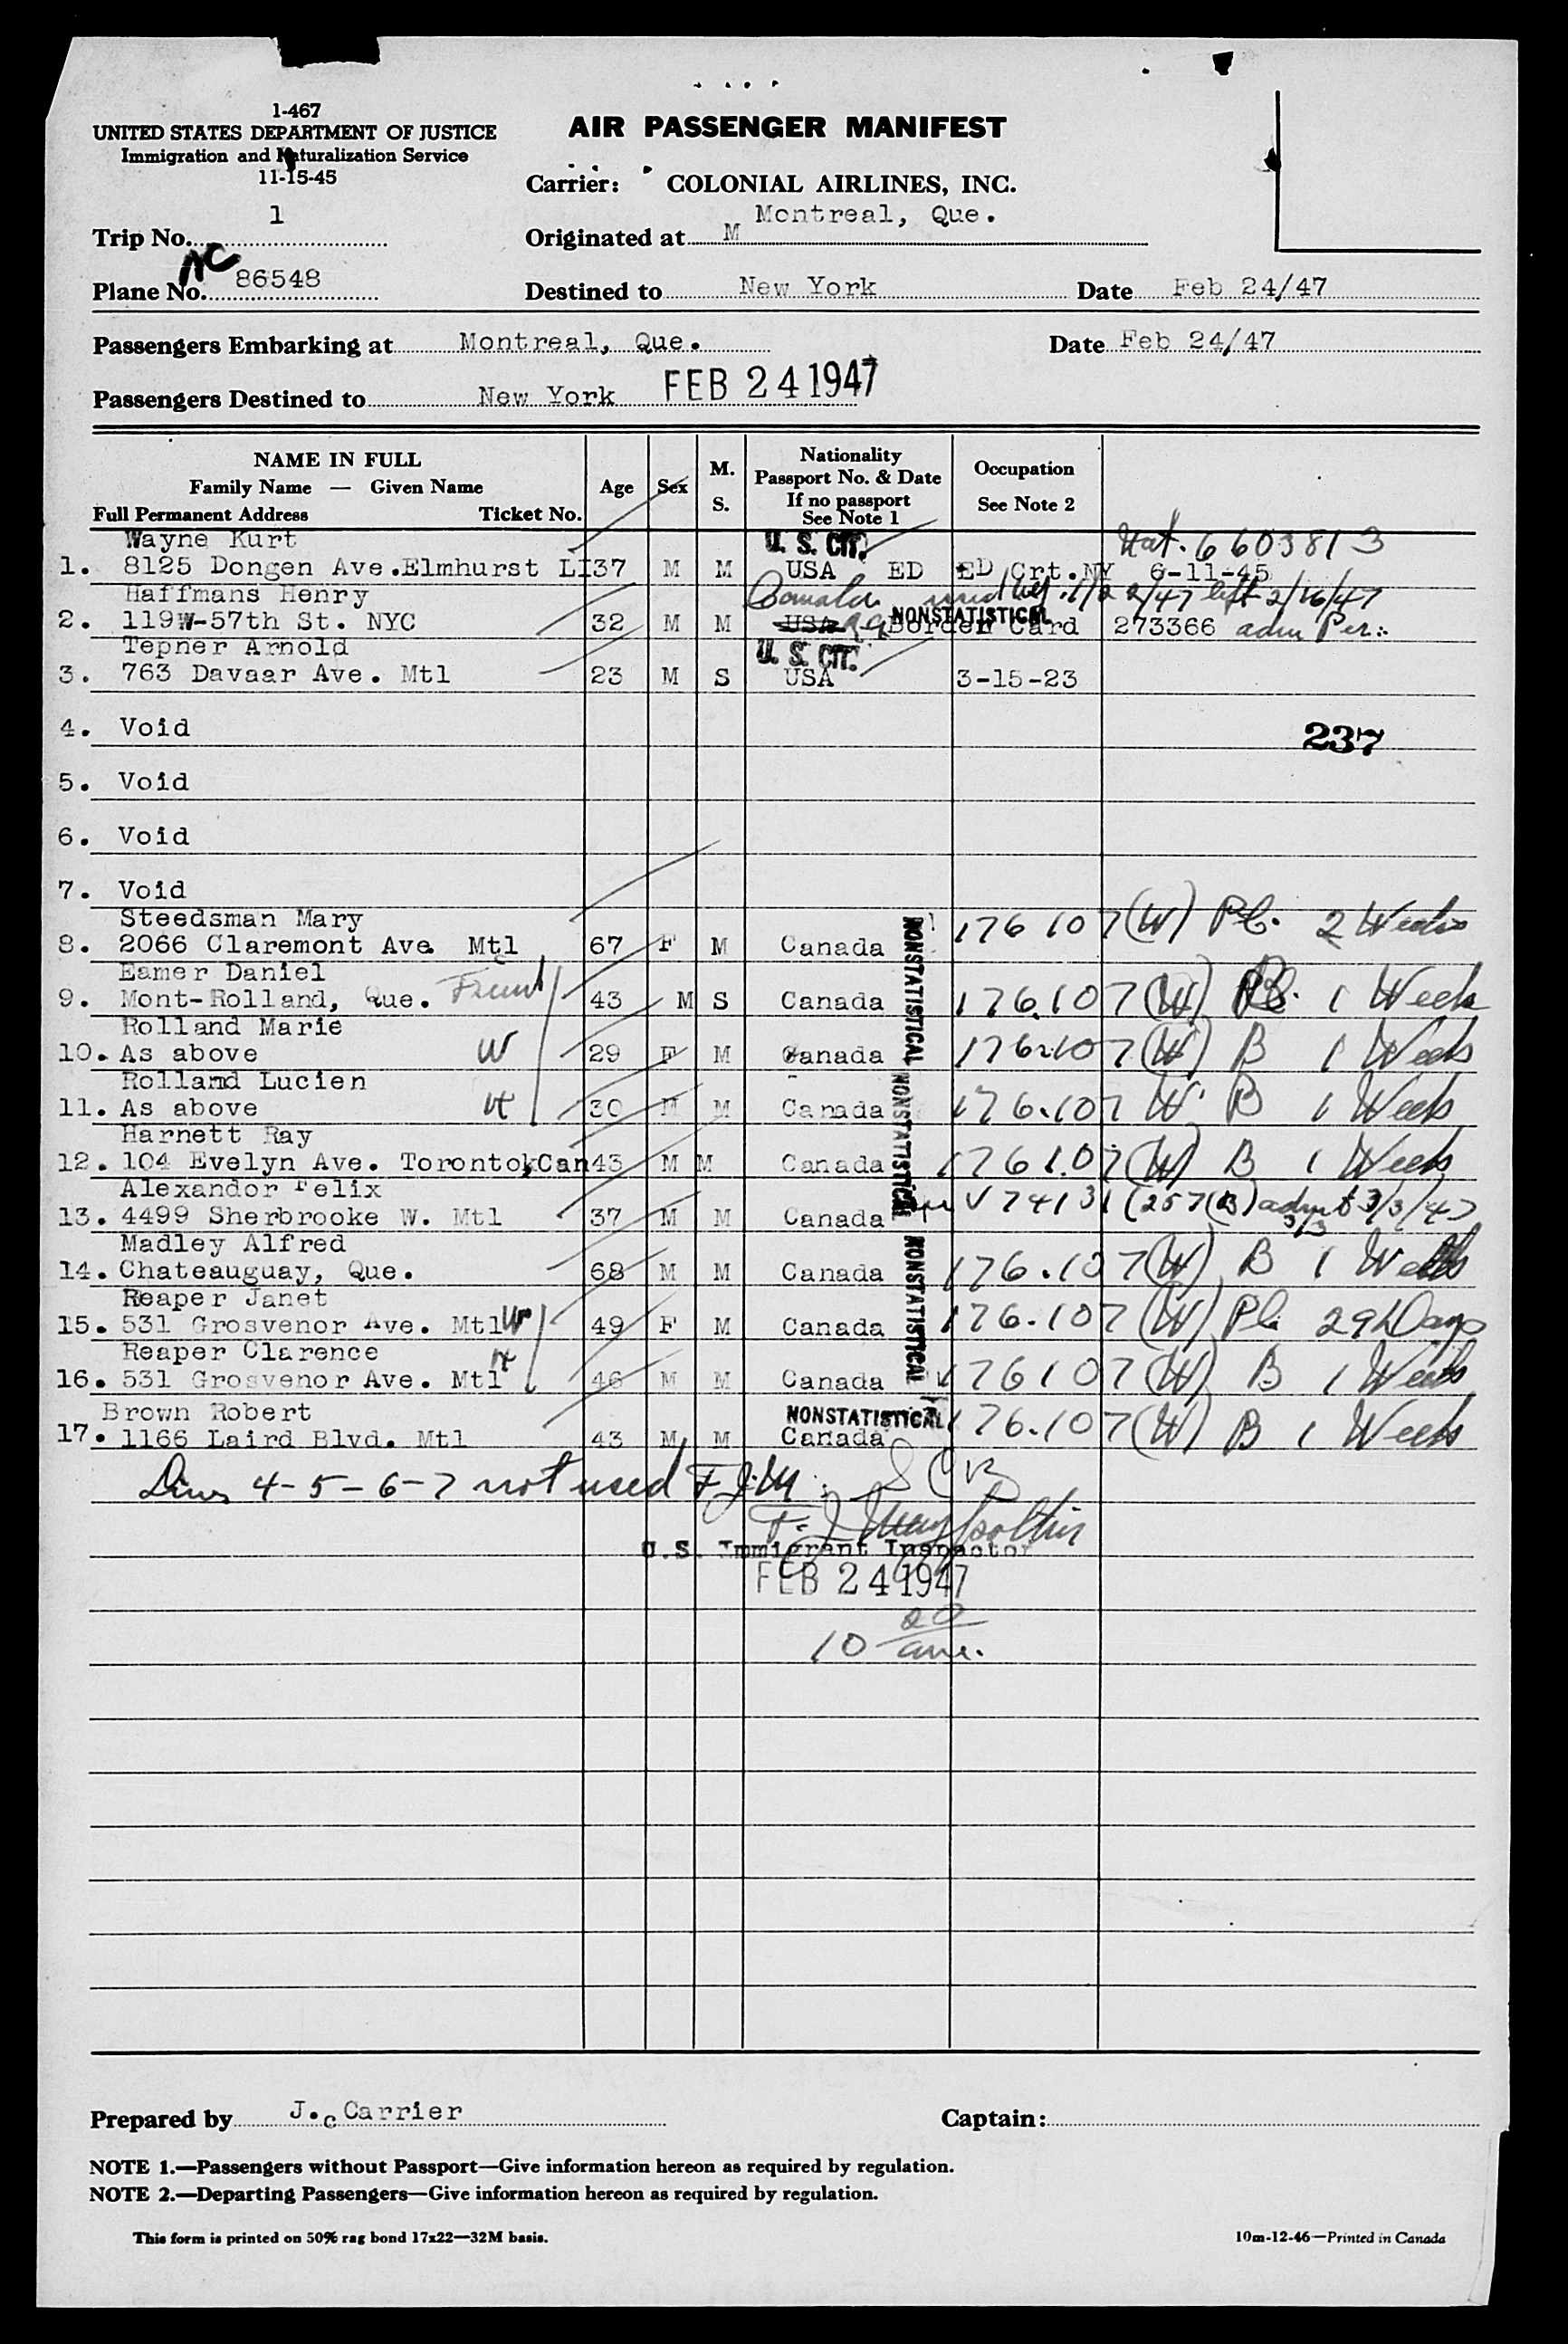 1-467
UNITED STATES DEPARTMENT OF JUSTICE
Immigration and Naturalization Service
11-15-45
AIR PASSENGER MANIFEST
Carrier: COLONIAL AIRLINES, INC.
Trip No. 1
Originated at M Montreal, Que.
Plane No. NC 86548
Destined to New York Date Feb 24/47
Passengers Embarking at Montreal, Que. Date Feb 24/47
Passengers Destined to New York FEB 24 1947
NAME IN FULL
Family Name — Given Name
Full Permanent Address Ticket No.
Age
Sex
M. S.
Nationality
Passport No. & Date
If no passport
See Note 1
Occupation
See Note 2
Wayne Kurt U. S. CIT. Nat. 6603813
1. 8125 Dongen Ave.Elmhurst LI 37 M M USA ED ED Crt.NY 6-11-45
Haffmans Henry Canada 1/22/47 left 2/16/47
2. 119W-57th St. NYC 32 M M USA NONSTATISTICAL Border Card 273366 adm Per:
Tepner Arnold U. S. CIT.
3. 763 Davaar Ave. Mtl 23 M S USA 3-15-23
4. Void 237
5. Void
6. Void
7. Void
Steedsman Mary
8. 2066 Claremont Ave Mtl 67 F M Canada NONSTATISTICAL 176 107 (W) Pl. 2 Weeks
Eamer Daniel
9. Mont-Rolland, Que. Friend 43 M S Canada 176.107 (W) Pl. 1 Week
Rolland Marie
10. As above W 29 F M Canada 176.107 (W) B 1 Week
Rolland Lucien
11. As above H 30 M M Canada NONSTATISTICAL 176.107 W B 1 Week
Harnett Ray
12. 104 Evelyn Ave. Toronto,Can 43 M M Canada 176107 (W) B 1 Week
Alexandor Felix
13. 4499 Sherbrooke W. Mtl 37 M M Canada V 74131 (257(B) admt 3/3/47
Madley Alfred
14. Chateauguay, Que. 68 M M Canada NONSTATISTICAL 176.107 (W) B 1 Week
Reaper Janet
15. 531 Grosvenor Ave. Mtl W 49 F M Canada 176.107 (W) Pl. 29 Days
Reaper Clarence
16. 531 Grosvenor Ave. Mtl H 46 M M Canada 176107 (W) B 1 Week
Brown Robert NONSTATISTICAL
17. 1166 Laird Blvd. Mtl 43 M M Canada 176.107 (W) B 1 Week
Lines 4-5-6-7 not used F.J.M.
U.S. Immigrant Inspector
FEB 24 1947
10 20 am.
Prepared by J. C Carrier
Captain:
NOTE 1.—Passengers without Passport—Give information hereon as required by regulation.
NOTE 2.—Departing Passengers—Give information hereon as required by regulation.
This form is printed on 50% rag bond 17x22—32M basis.
10m-12-46—Printed in Canada